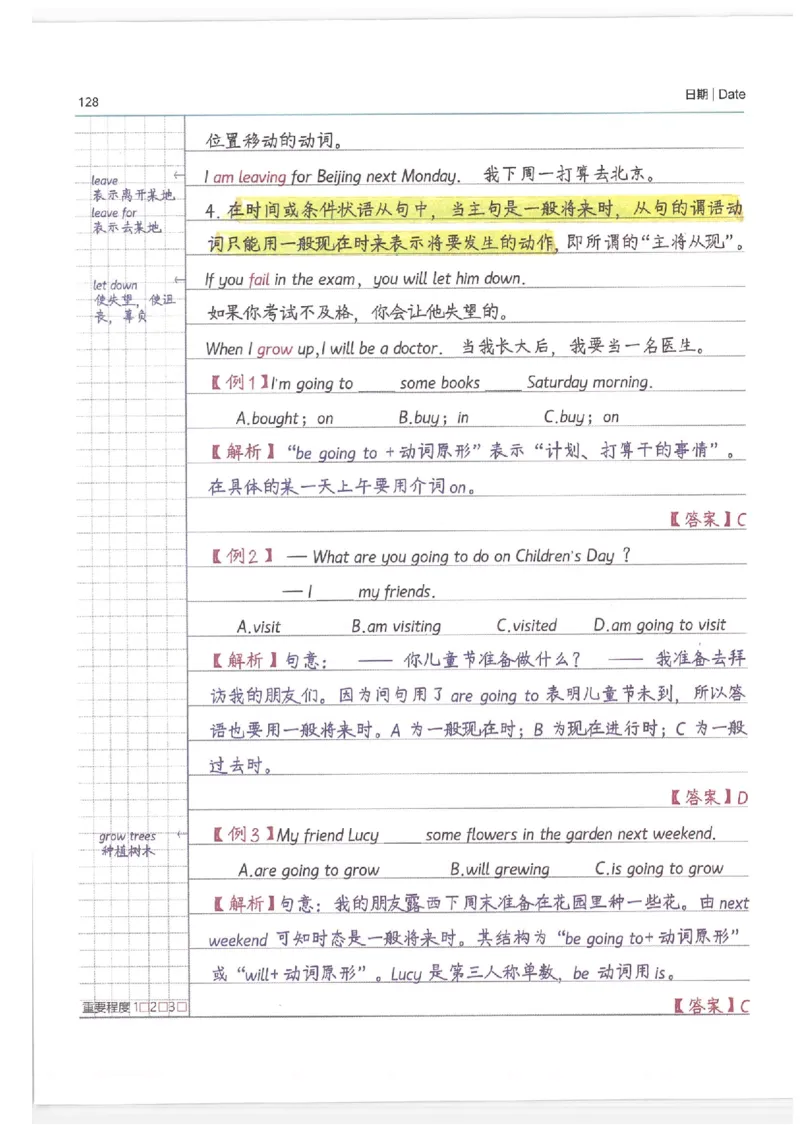 128
日期 | Date
位置移动的动词。
leave
表示离开某地
leave for
表示去某地
I am leaving for Beijing next Monday. 我下周一打算去北京。
4. 在时间或条件状语从句中，当主句是一般将来时，从句的谓语动
词只能用一般现在时来表示将要发生的动作，即所谓的“主将从现”。
let down
使失望，使沮
丧，辜负
If you fail in the exam, you will let him down.
如果你考试不及格，你会让他失望的。
When I grow up,I will be a doctor. 当我长大后，我要当一名医生。
【例1】I'm going to ____ some books ____ Saturday morning.
A.bought；on B.buy；in C.buy；on
【解析】“be going to +动词原形”表示“计划、打算干的事情”。
在具体的某一天上午要用介词on。
【答案】C
【例2】 — What are you going to do on Children's Day ?
— I ____ my friends.
A.visit B.am visiting C.visited D.am going to visit
【解析】句意： —— 你儿童节准备做什么？ —— 我准备去拜
访我的朋友们。因为问句用了 are going to 表明儿童节未到，所以答
语也要用一般将来时。A 为一般现在时；B 为现在进行时；C 为一般
过去时。
【答案】D
grow trees
种植树木
【例3】My friend Lucy ____ some flowers in the garden next weekend.
A.are going to grow B.will grewing C.is going to grow
【解析】句意：我的朋友露西下周末准备在花园里种一些花。由 next
weekend 可知时态是一般将来时。其结构为“be going to+动词原形”
或“will+动词原形”。Lucy 是第三人称单数，be 动词用is。
重要程度 1□2□3□
【答案】C